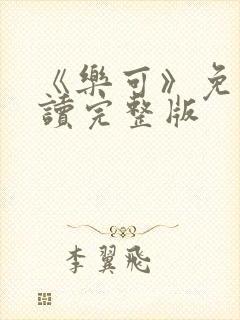 《樂可》免
讀完整版
李翼飛